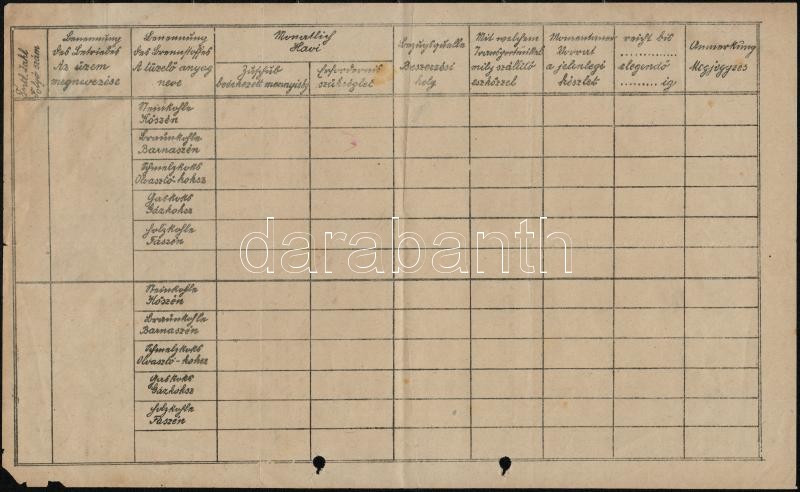 Fortl. Zahl
Folyó szám
Benennung
des Betriebes
Az üzem
megnevezése
Benennung
des Brennstoffes
A tüzelő anyag
neve
Monatlich
Havi
Zuschub
beérkezett mennyiség
Erfordernis
szükséglet
Bezugsquelle
Beszerzési
hely
Mit welchem
Transportmittel
mily szállító
eszközzel
Momentaner
Vorrat
a jelenlegi
készlet
reicht bis
..............
elegendő
.......... ig
Anmerkung
Megjegyzés
Steinkohle
Kőszén
Braunkohle
Barnaszén
Schmelzkoks
Olvasztó-koksz
Gaskoks
Gázkoksz
Holzkohle
Faszén
darabanth
Steinkohle
Kőszén
Braunkohle
Barnaszén
Schmelzkoks
Olvasztó-koksz
Gaskoks
Gázkoksz
Holzkohle
Faszén